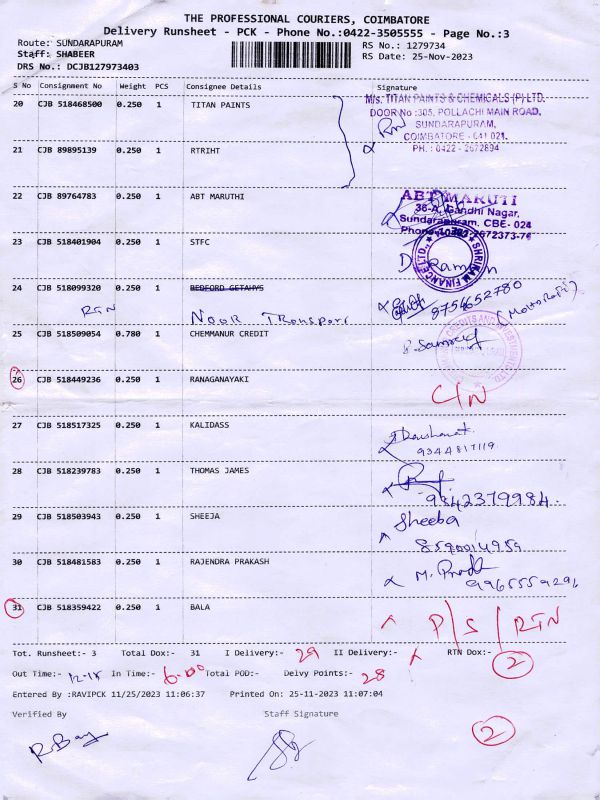 THE PROFESSIONAL COURIERS, COIMBATORE
Delivery Runsheet - PCK - Phone No.:0422-3505555 - Page No.:3
Route: SUNDARAPURAM
RS No.: 1279734
Staff: SHABEER
RS Date: 25-Nov-2023
DRS No.: DCJB127973403
S No Consignment No Weight PCS Consignee Details Signature
20 CJB 518468500 0.250 1 TITAN PAINTS
M/s. TITAN PAINTS & CHEMICALS (P) LTD.
DOOR No :305, POLLACHI MAIN ROAD,
SUNDARAPURAM,
COIMBATORE - 641 021.
PH. : 0422 - 2672894
21 CJB 89895139 0.250 1 RTRIHT
22 CJB 89764783 0.250 1 ABT MARUTHI
ABT MARUTI
36-A, Gandhi Nagar,
Sundarapuram, CBE- 024
23 CJB 518401904 0.250 1 STFC
SHRIRAM FINANCE LTD.
24 CJB 518099320 0.250 1 BEDFORD GETAHYS
RTN
NOOR TRANSPORT
8754652780
25 CJB 518509054 0.780 1 CHEMMANUR CREDIT
26 CJB 518449236 0.250 1 RANAGANAYAKI
C/N
27 CJB 518517325 0.250 1 KALIDASS
9344817119
28 CJB 518239783 0.250 1 THOMAS JAMES
9842379984
29 CJB 518503943 0.250 1 SHEEJA
Sheeba
8590014959
30 CJB 518481583 0.250 1 RAJENDRA PRAKASH
9965559296
31 CJB 518359422 0.250 1 BALA
P/S/RTN
Tot. Runsheet:- 3 Total Dox:- 31 I Delivery:- 29 II Delivery:- RTN Dox:- 2
Out Time:- 12-15 In Time:- 6-00 Total POD:- Delvy Points:- 28
Entered By :RAVIPCK 11/25/2023 11:06:37 Printed On: 25-11-2023 11:07:04
Verified By Staff Signature
2